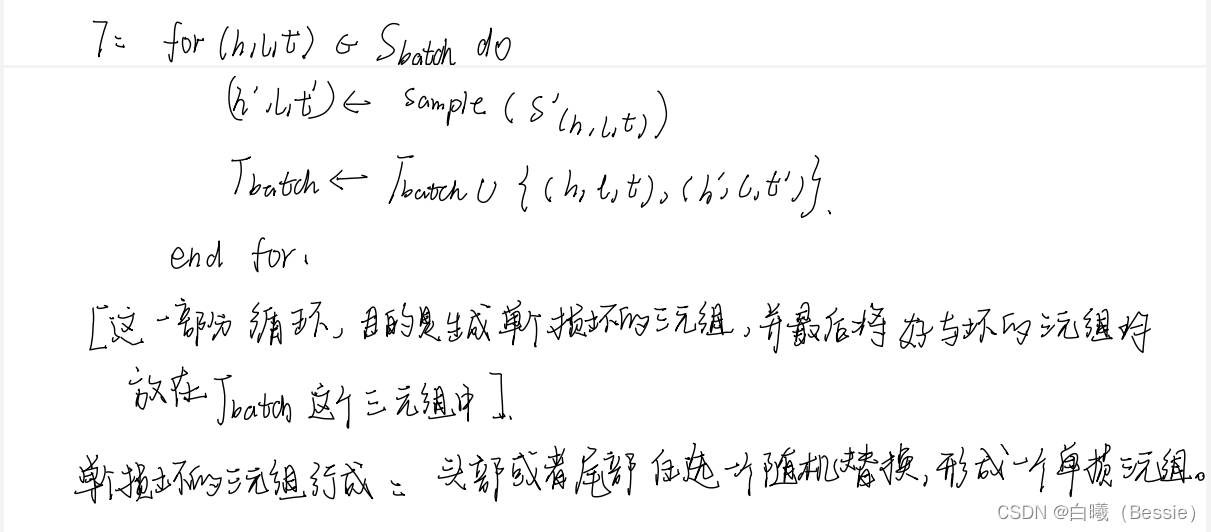 7: for (h,l,t) ∈ Sbatch do
(h',l,t') ← sample (S'(h,l,t))
Tbatch ← Tbatch ∪ {(h,l,t),(h',l,t')}.
end for.
[这一部分循环,目的是生成单个损坏的三元组,并最后将好与坏的三元组将
放在Tbatch这个三元组中].
单个损坏的三元组形成: 头部或者尾部任选一个随机替换,形成一个单损三元组。
CSDN @白曦(Bessie)